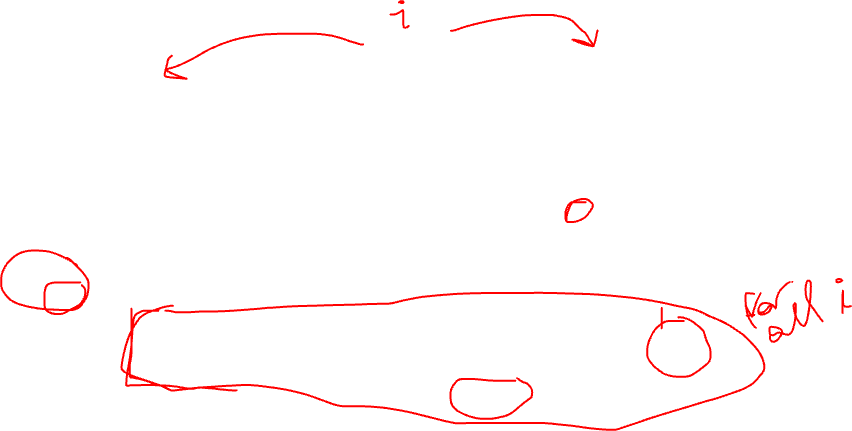 i
for
all i